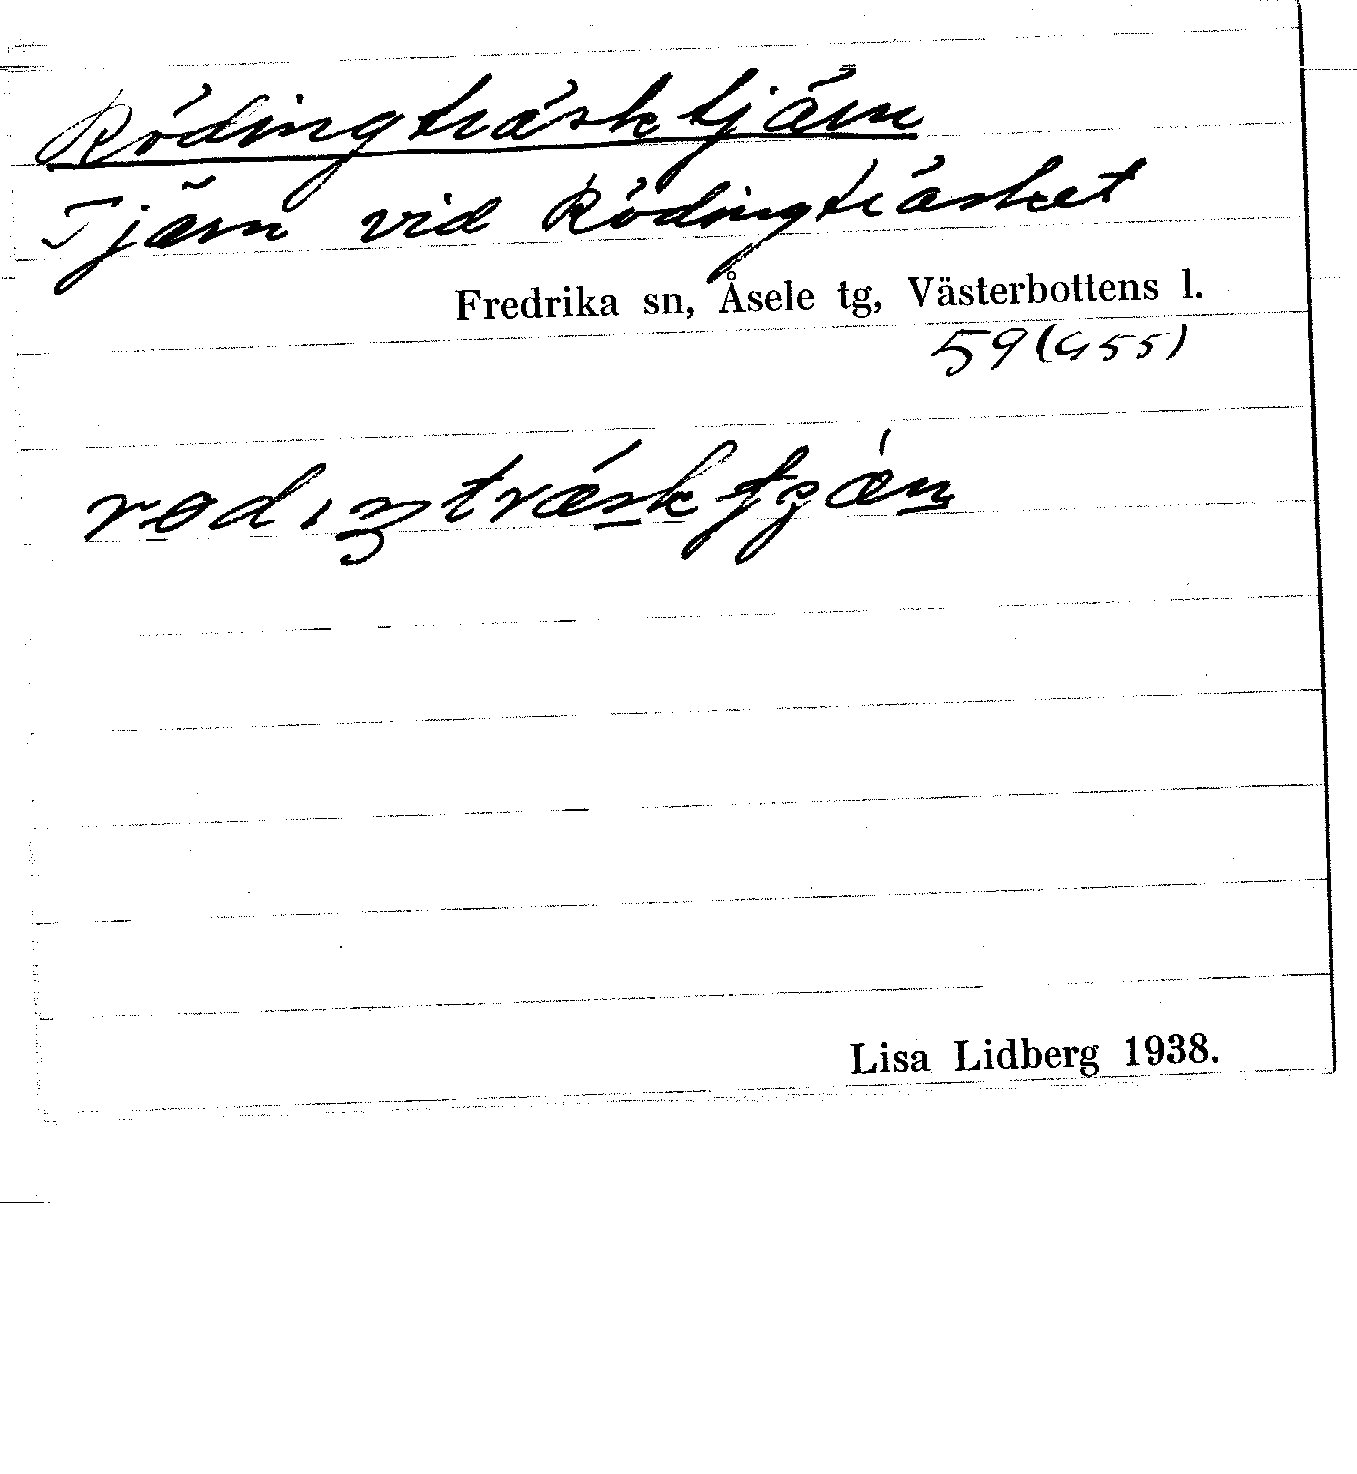 Rödingträsktjärn
Tjärn vid Rödingträsket
Fredrika sn, Åsele tg, Västerbottens l.
59(G55)
Lisa Lidberg 1938.